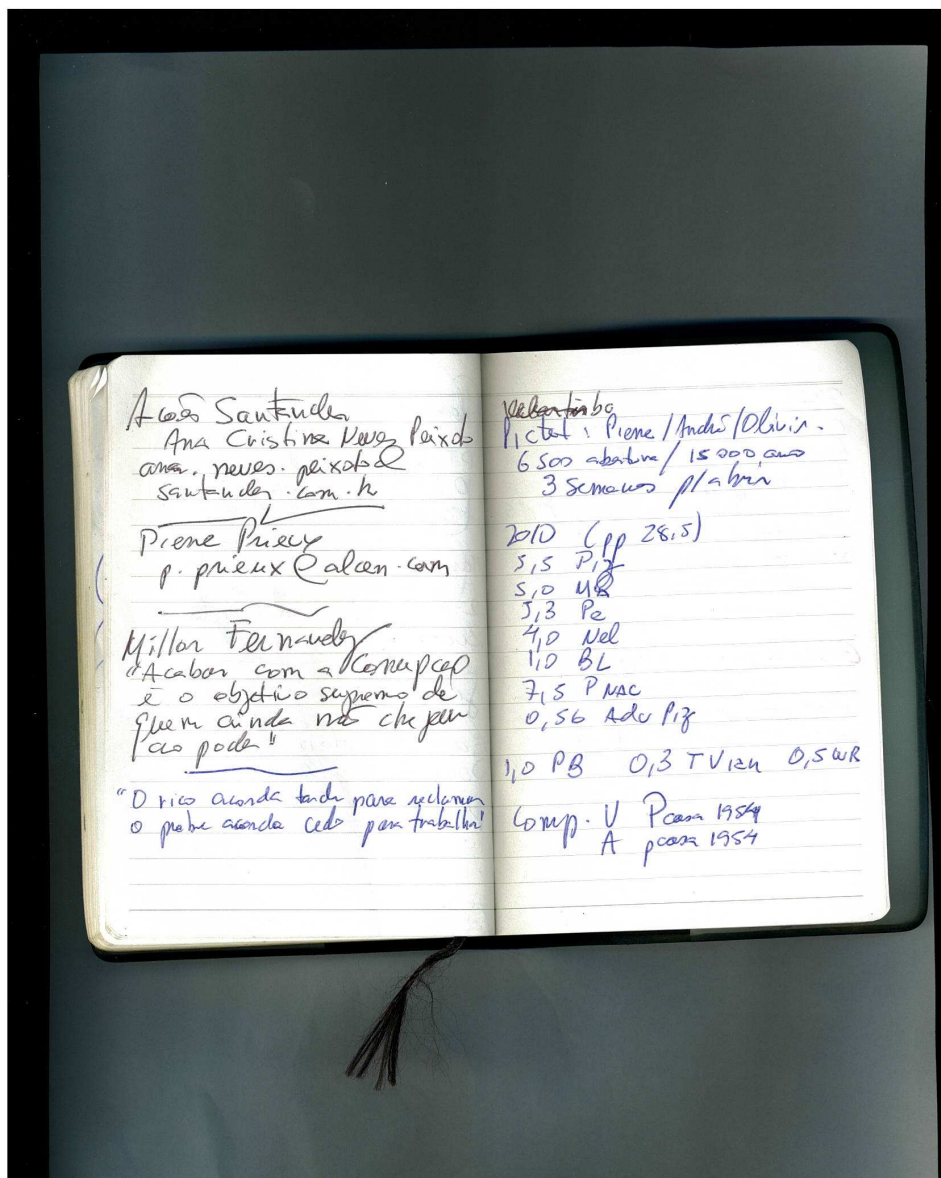 Ações Santander
Ana Cristina Neves Peixoto
ana.neves.peixoto@
santander.com.br
Pierre Prieux
p.prieux@alcen.com
Millor Fernandes
"Acabar com a corrupção
é o objetivo supremo de
quem ainda não chegou
ao poder"
"O rico acorda tarde para reclamar
o pobre acorda cedo para trabalhar"
Pictet: Pierre/André/Olivier.
6500 abertura / 15000 ano
3 semanas p/ abrir
2010 (pp 28,5)
5,5 Piz
5,0 MR
5,3 Pe
4,0 Nel
1,0 BL
7,5 P NAC
0,56 Adv Piz
1,0 PB 0,3 TV 0,5 WR
Comp. V Pcasa 1954
A pcasa 1954